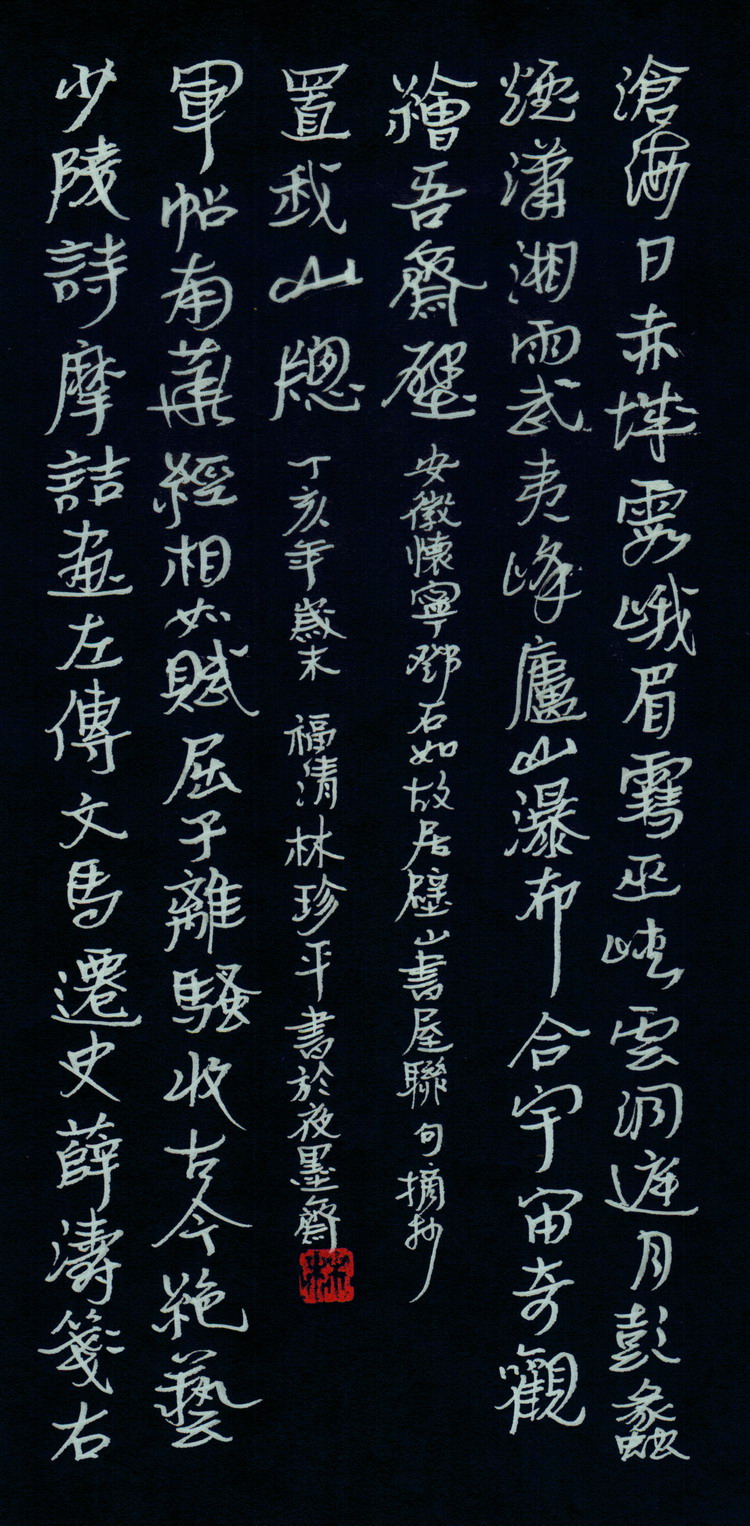 滄海日赤城霞峨眉雪巫峽雲洞庭月彭蠡
煙瀟湘雨武夷峰廬山瀑布合宇宙奇觀
繪吾齋壁
安徽懷寧鄧石如故居壁山書屋聯句摘抄
少陵詩摩詰畫左傳文馬遷史薛濤箋右
軍帖南華經相如賦屈子離騷收古今絕藝
置我山牕
丁亥年歲末 福清林珍平書於夜墨齋
林